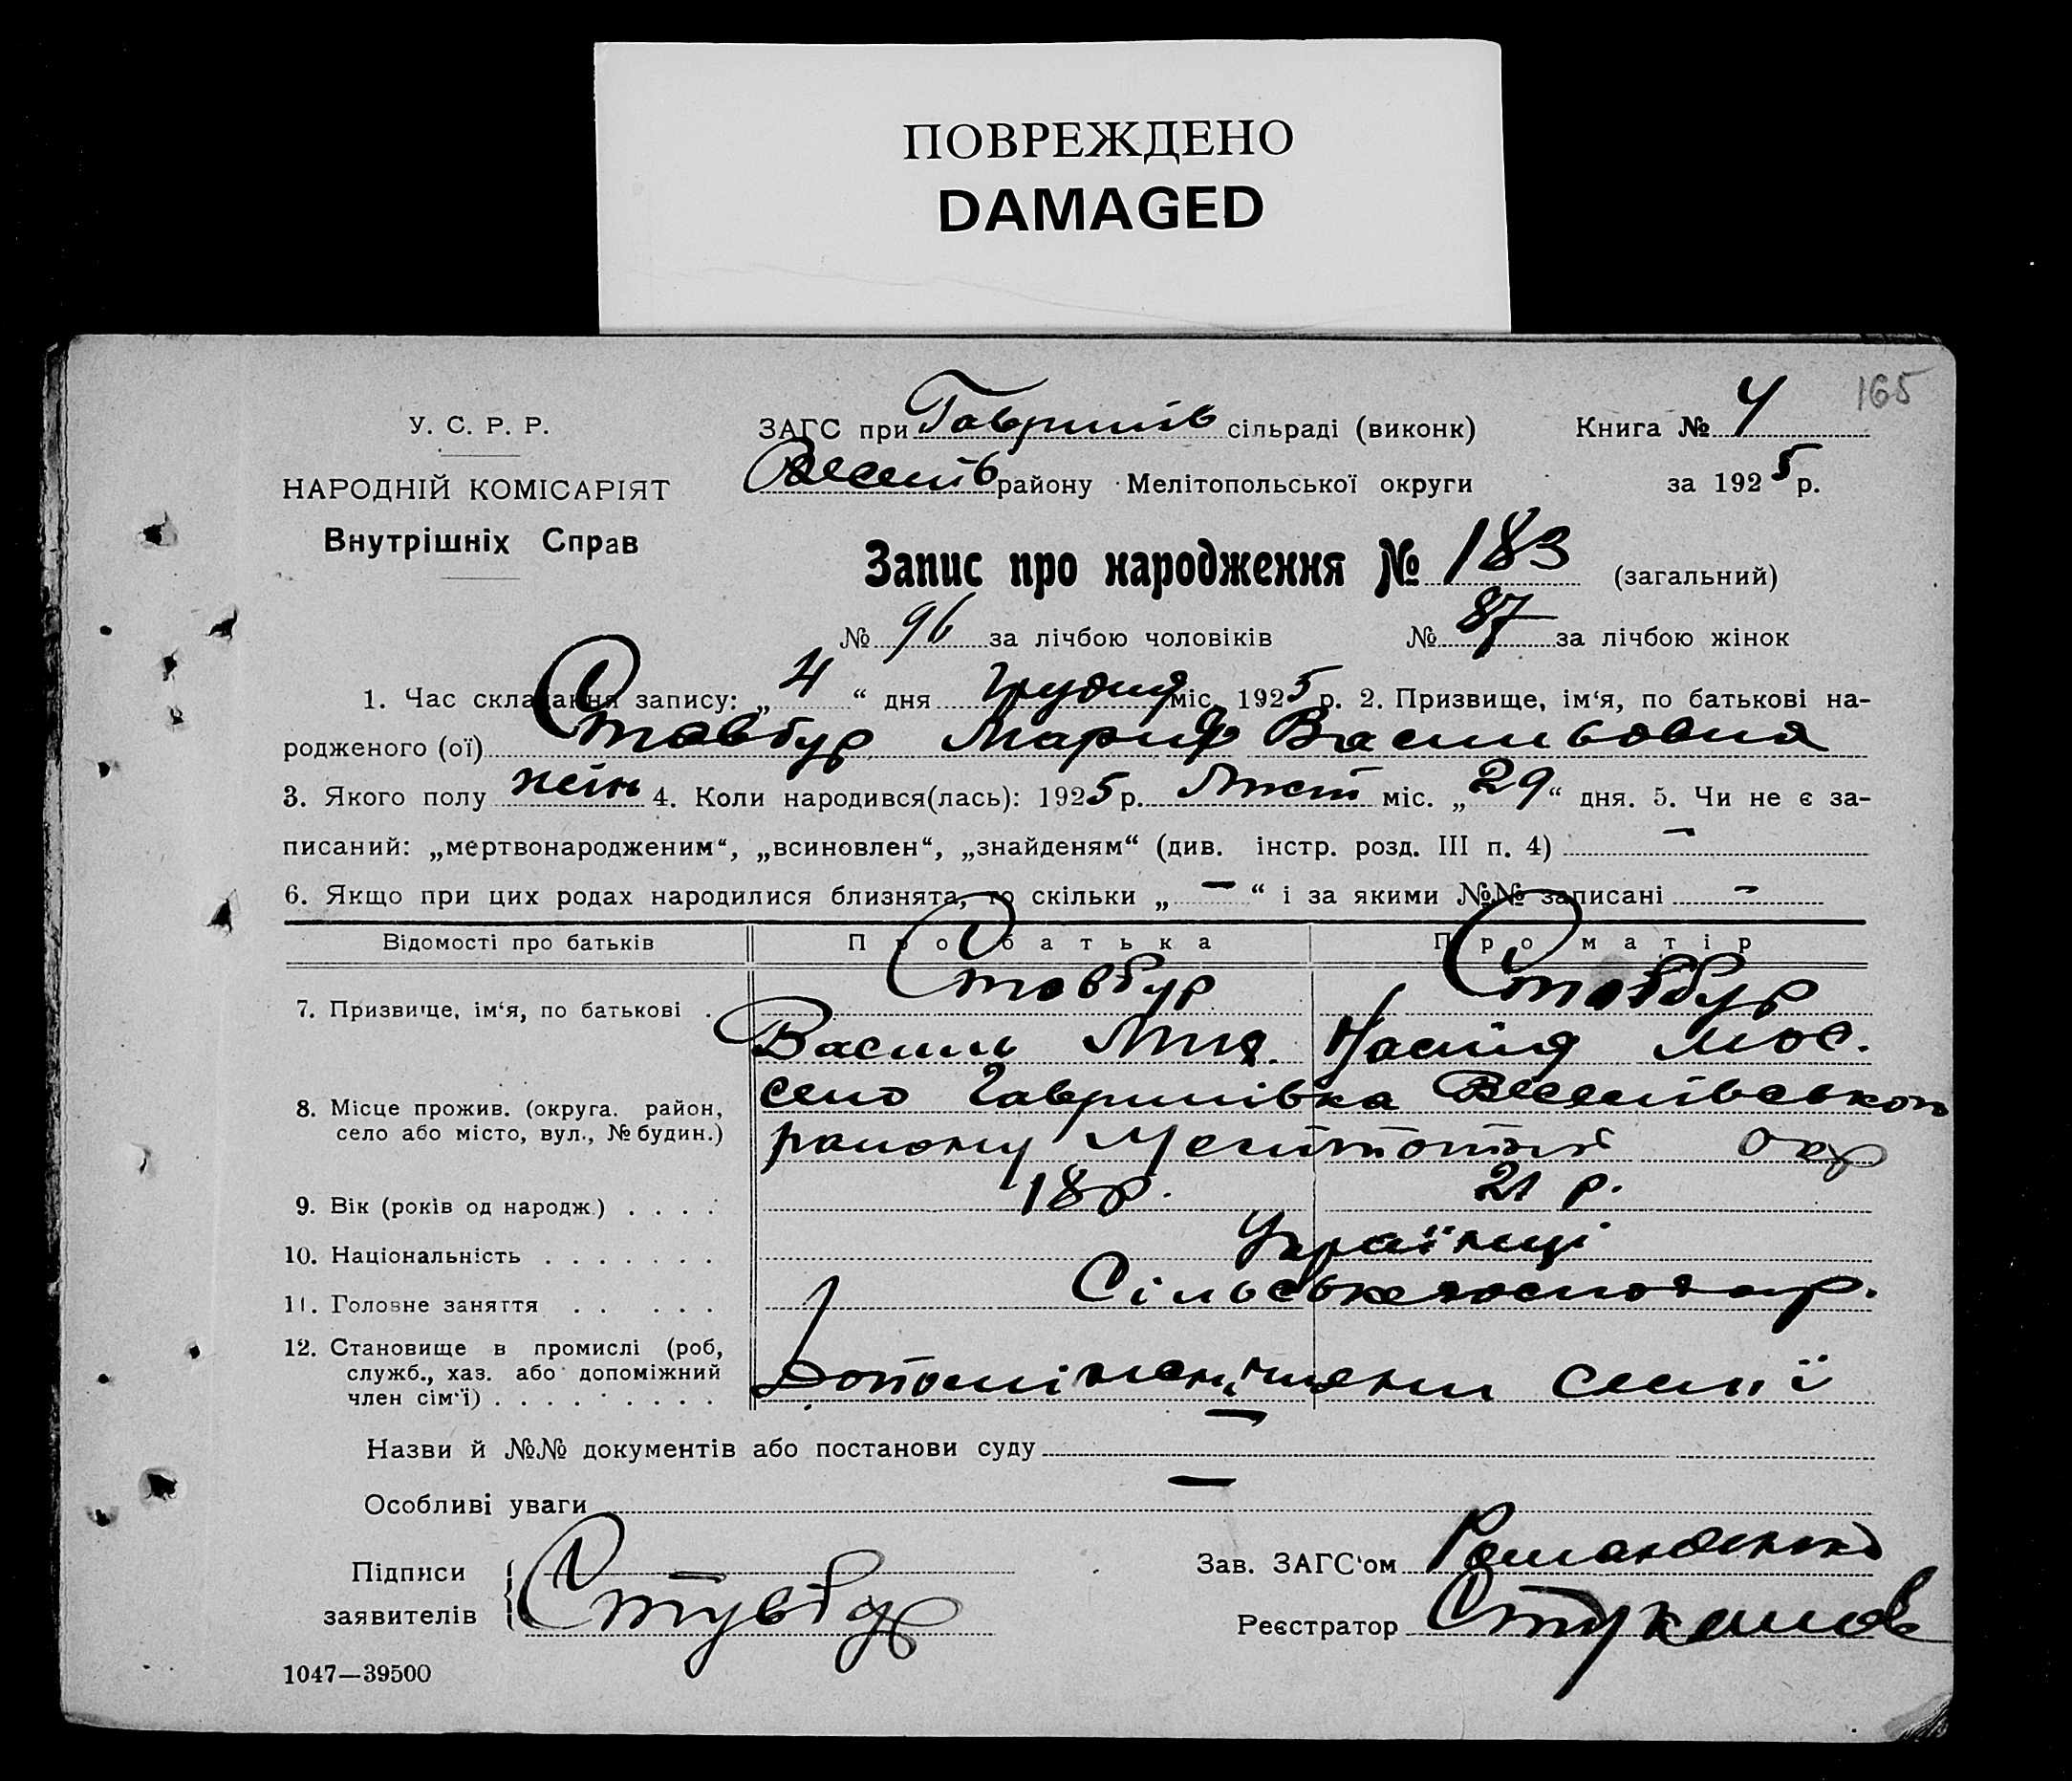 ПОВРЕЖДЕНО
DAMAGED
165
У. С. Р. Р.
НАРОДНІЙ КОМІСАРІЯТ
Внутрішніх Справ
ЗАГС при Гаврилів сільраді (виконк) Книга № 4
Веселів району Мелітопольської округи за 1925 р.
Запис про народження № 183 (загальний)
№ 96 за лічбою чоловіків № 87 за лічбою жінок
1. Час складання запису: „ 4 “ дня Грудня міс. 1925 р. 2. Призвище, ім‘я, по батькові на-
родженого (ої) Стовбур Мария Васильовна
3. Якого полу жін 4. Коли народився(лась): 1925 р. Лист міс. „ 29 “ дня. 5. Чи не є за-
писаний: „мертвонародженим“, „всиновлен“, „знайденям“ (див. інстр. розд. III п. 4) —
6. Якщо при цих родах народилися близнята, то скільки „ — “ і за якими №№ записані —
Відомості про батьків Про батька Про матір
7. Призвище, ім‘я, по батькові . Стовбур Стовбур
Василь Настя
8. Місце прожив. (округа. район,
село або місто, вул., № будин.)
село Гаврилівка Веселівського
району Окр
9. Вік (років од народж.) . . . . 18 р. 21 р.
10. Національність . . . . . . . Українці
11. Головне заняття . . . . . Сільське господар.
12. Становище в промислі (роб,
служб., хаз. або допоміжний
член сім‘ї) . . . . . . . . семії
Назви й №№ документів або постанови суду —
Особливі уваги —
Підписи
заявителів
Зав. ЗАГС‘ом Романенко
Реєстратор
1047—39500